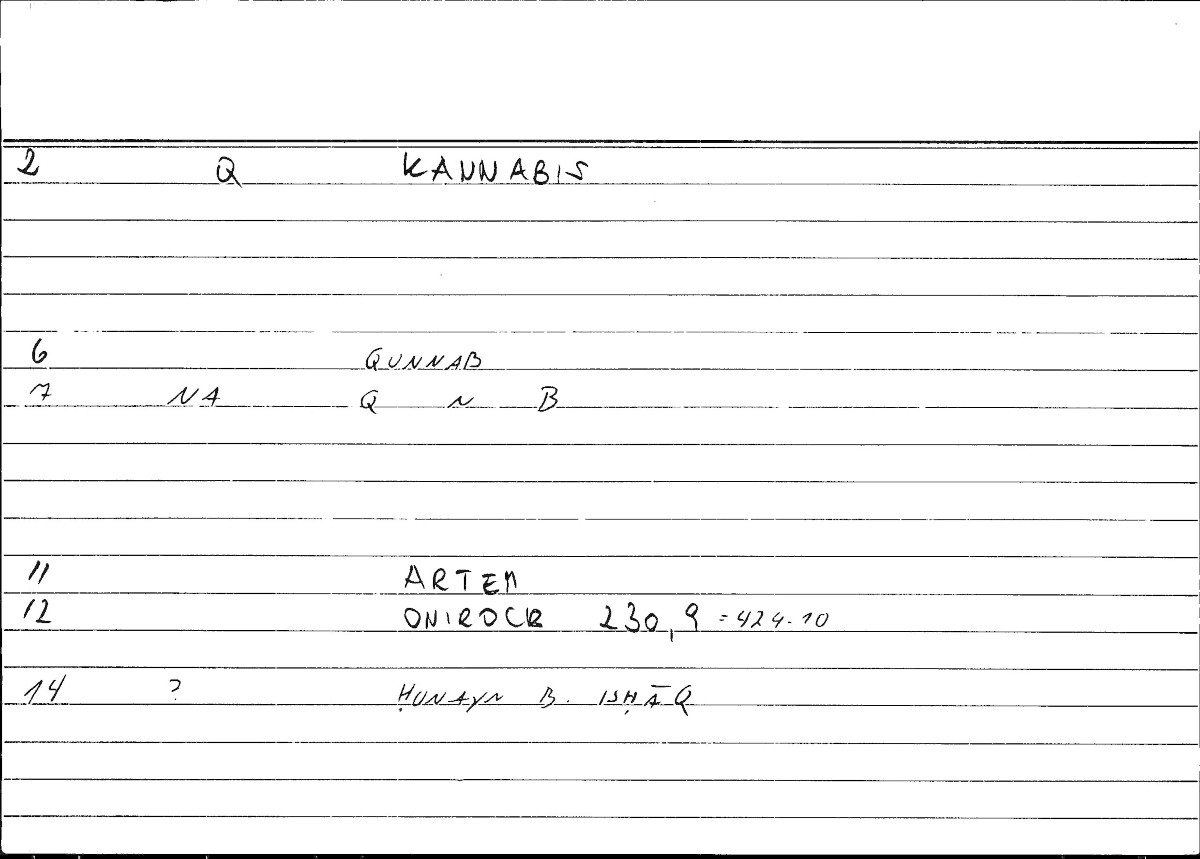 2 Q KANNABIS
6 QUNNAB
7 NA Q N B
11 ARTEM
12 ONIROCR 230,9 = 424.10
14 ? ḤUNAYN B. ISḤĀQ